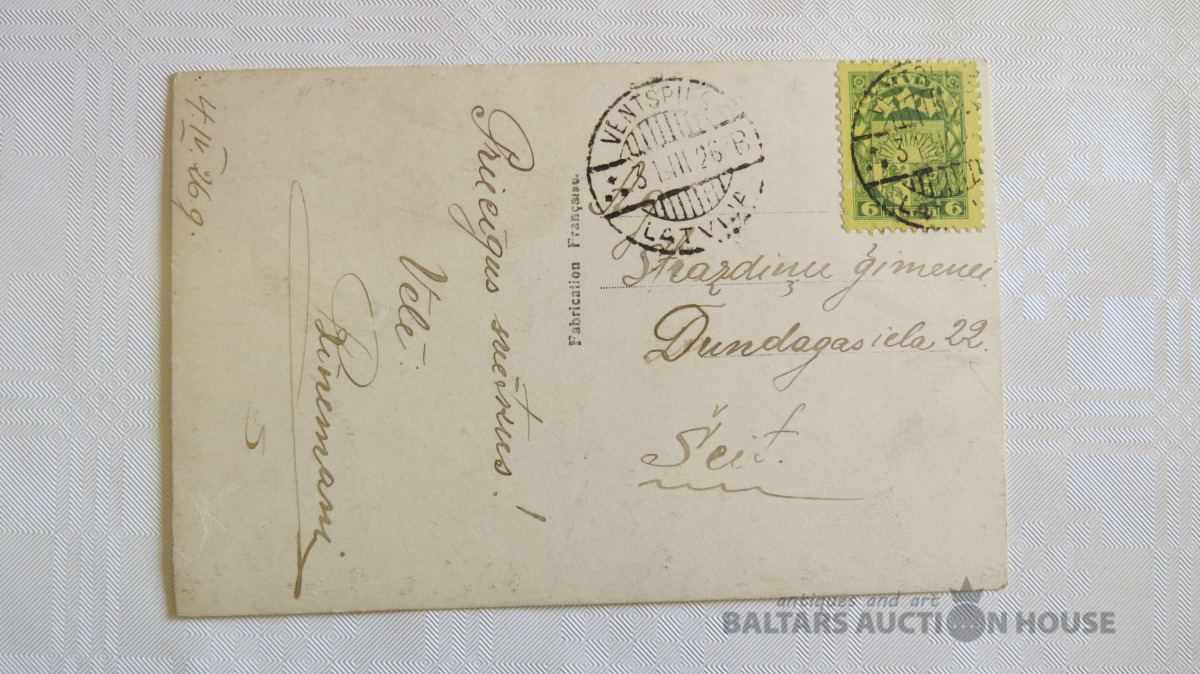 4.IV.26.g.
Priecīgus svētkus!
Vēlē
Fabrication Française.
VENTSPILS
31.III.26 B
LATVIJA
LATVIJA
6 6
Strazdiņu ģimenei
Dundagas iela 22.
Šeit.
antiques and art
BALTARS AUCTION HOUSE